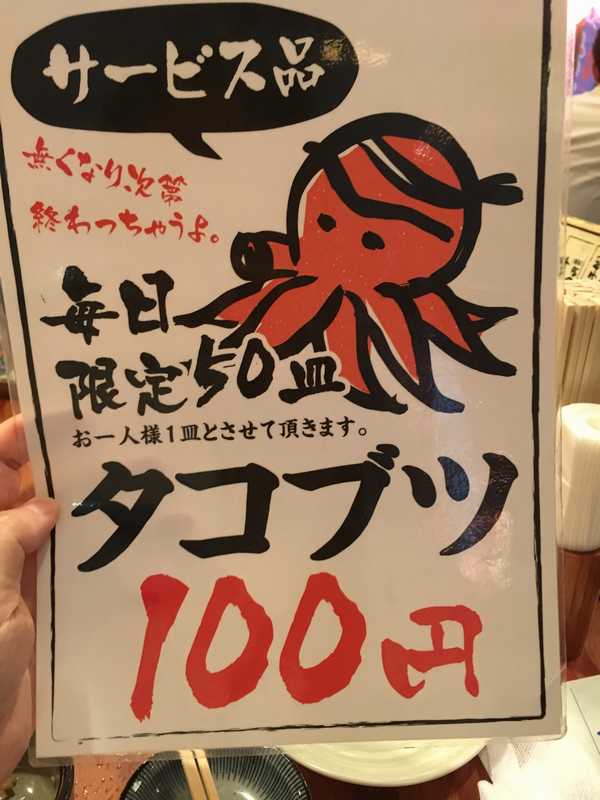 サービス品
無くなり次第
終わっちゃうよ。
毎日
限定50皿
お一人様1皿とさせて頂きます。
タコブツ
100円